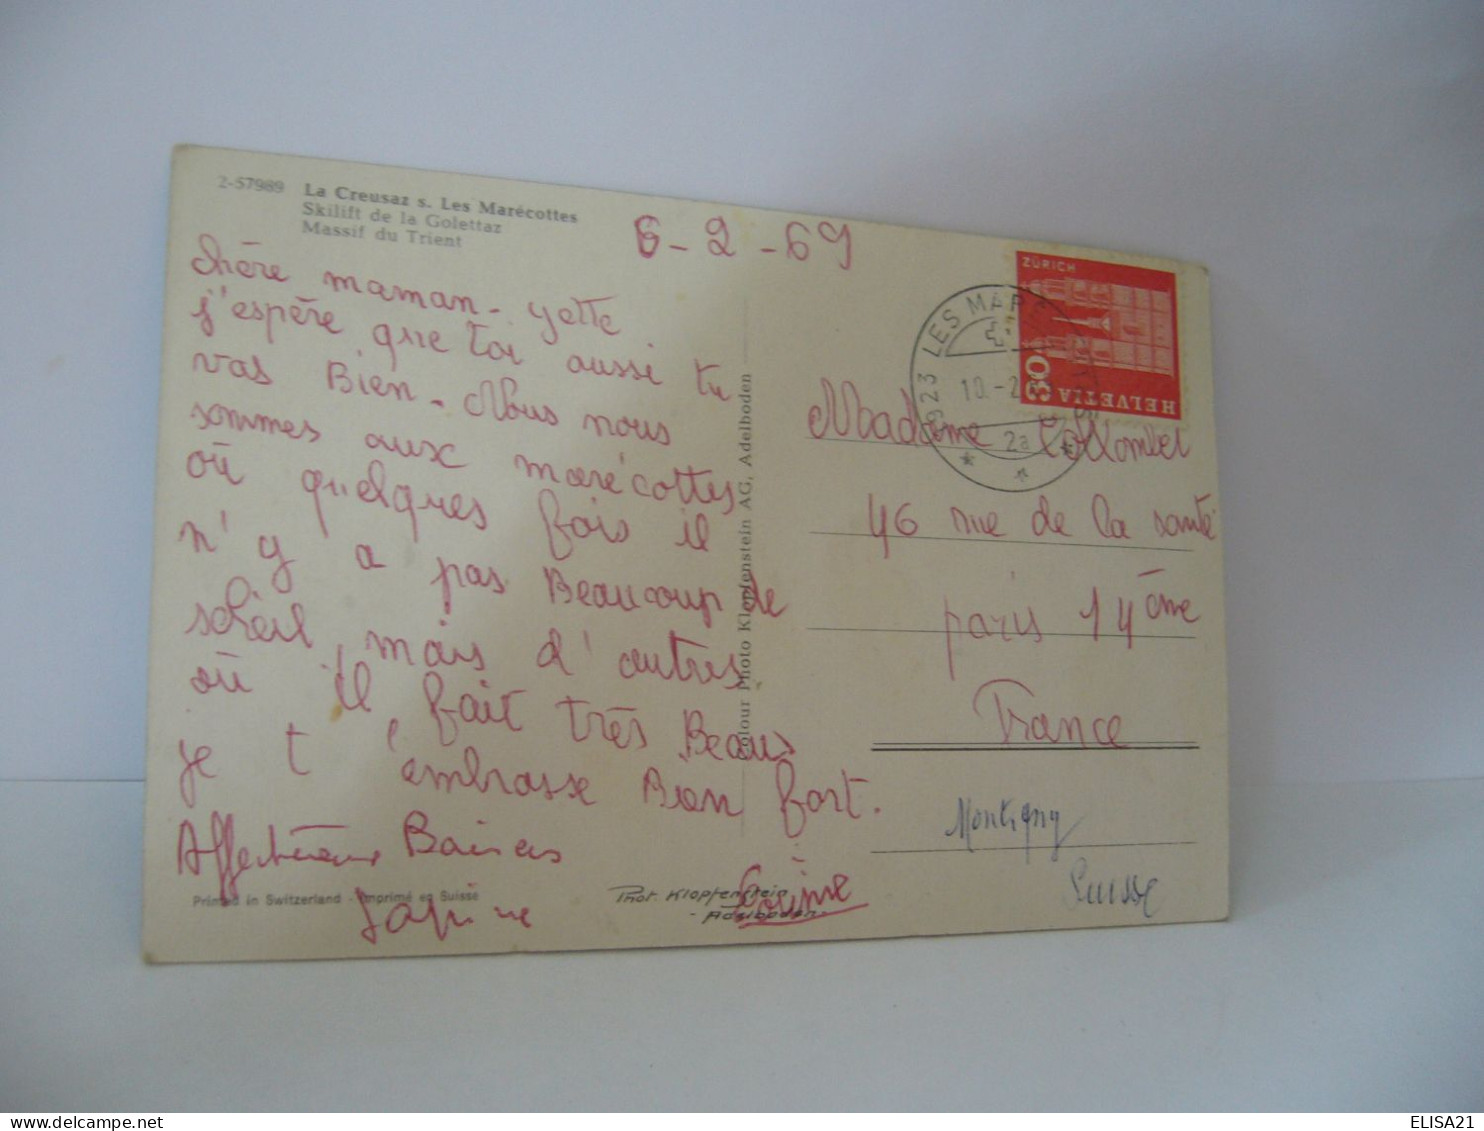 2-57989 La Creusaz s. Les Marécottes
Skilift de la Golettaz
Massif du Trient
6-2-69
chère maman-yette
j'espère que toi aussi tu
vas Bien-Nous nous
sommes aux marécottes
où quelques fois il
n'y a pas Beaucoup de
soleil, mais d'autres
où il fait très Beaus
je t'embrasse Bien fort.
Baisers
Printed in Switzerland - Imprimé en Suisse
Phot. Klopfenstein
- Adelboden -
Colour Photo Klopfenstein AG, Adelboden
1923 LES MAR
10.-2
2a
ZÜRICH
30
HELVETIA
Madame
46 rue de la santé
paris 14ème
France
Montigny
Suisse
delcampe.net
ELISA21